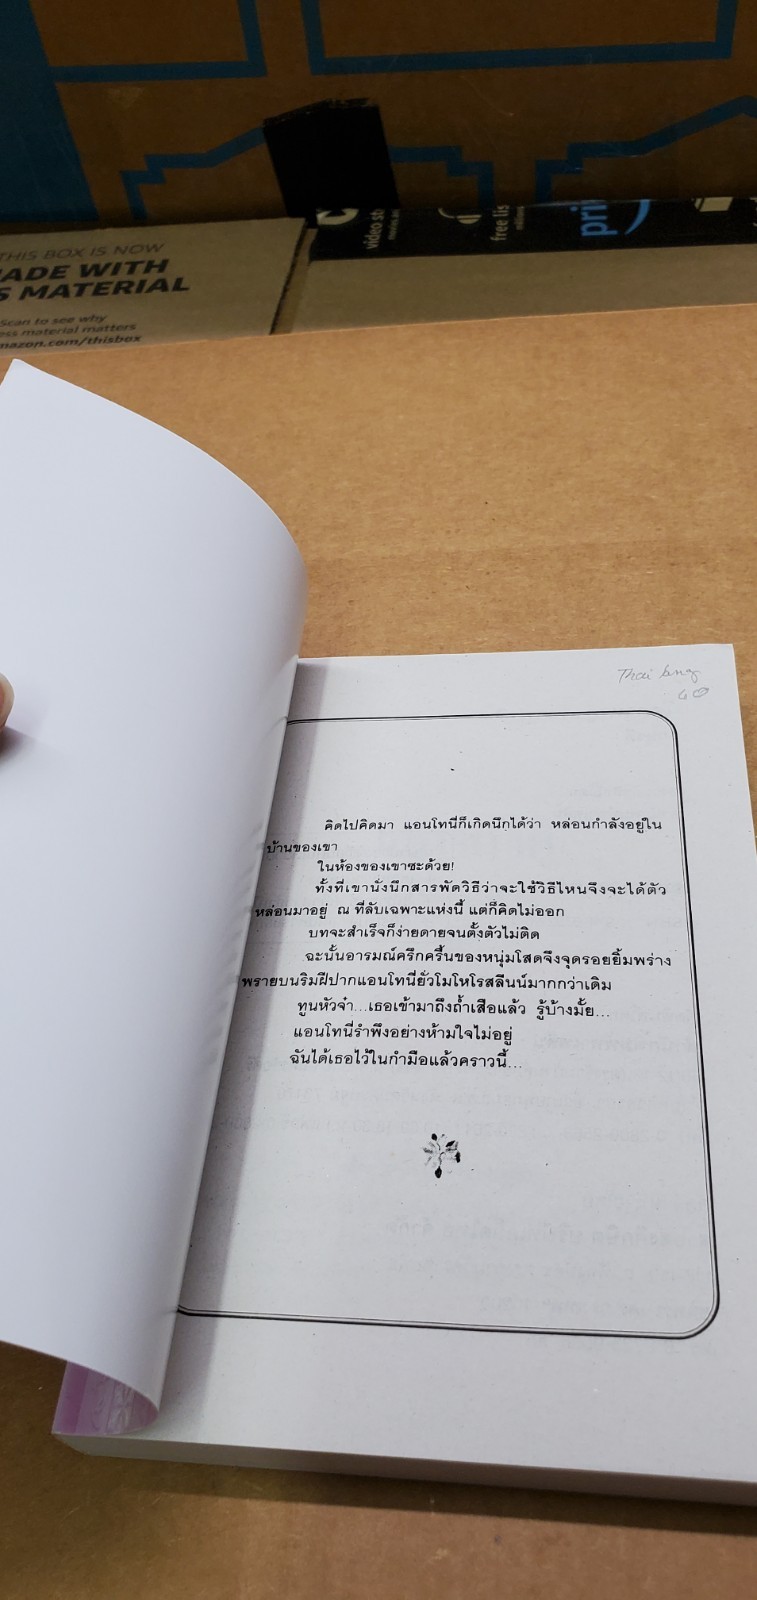 THIS BOX IS NOW
ADE WITH
S MATERIAL
Scan to see why
ess material matters
mazon.com/thisbox
video st
free lis
pri
Thai lang
คิดไปคิดมา แอนโทนี่ก็เกิดนึกได้ว่า หล่อนกำลังอยู่ใน
บ้านของเขา
ในห้องของเขาซะด้วย!
ทั้งที่เขานั่งนึกสารพัดวิธีว่าจะใช้วิธีไหนจึงจะได้ตัว
หล่อนมาอยู่ ณ ที่ลับเฉพาะแห่งนี้ แต่ก็คิดไม่ออก
บทจะสำเร็จก็ง่ายดายจนตั้งตัวไม่ติด
ฉะนั้นอารมณ์ครึกครื้นของหนุ่มโสดจึงจุดรอยยิ้มพร่าง
พรายบนริมฝีปากแอนโทนี่ยั่วโมโหโรสลีนน์มากกว่าเดิม
ทูนหัวจ๋า...เธอเข้ามาถึงถ้ำเสือแล้ว รู้บ้างมั้ย...
แอนโทนี่รำพึงอย่างห้ามใจไม่อยู่
ฉันได้เธอไว้ในกำมือแล้วคราวนี้...